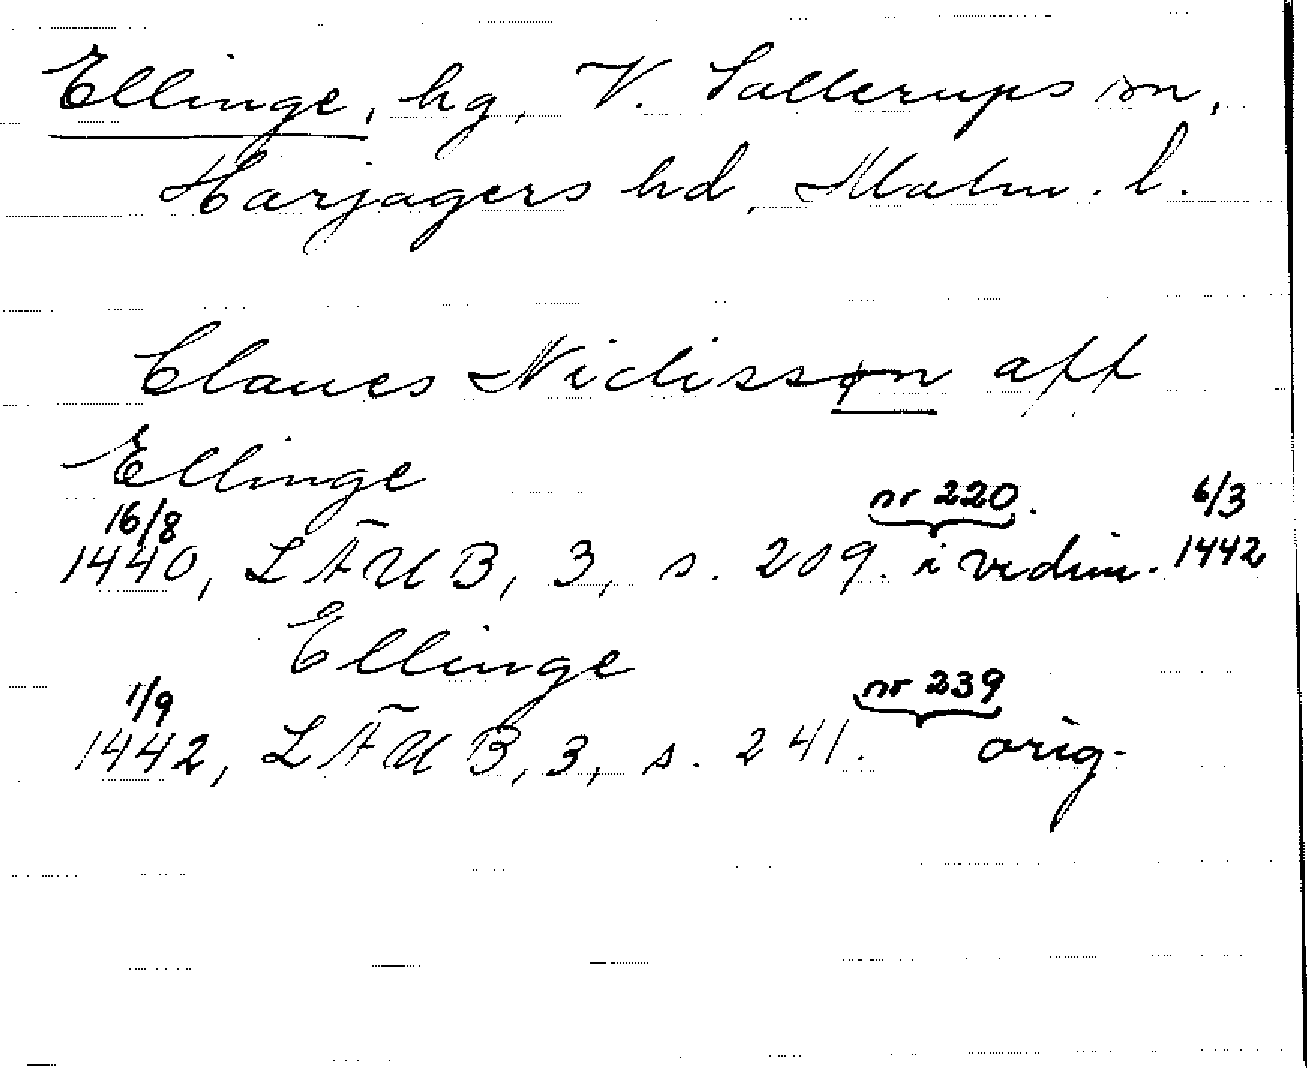 Ellinge, hg, V. Sallerups sn,
Harjagers hd, Malm. l.
Claues Niclissøn aff
Ellinge
16/8 nr 220. 6/3
1440, LÄUB, 3, s. 209. i vidim. 1442
Ellinge
1/9 nr 239
1442, LÄUB, 3, s. 241. orig.